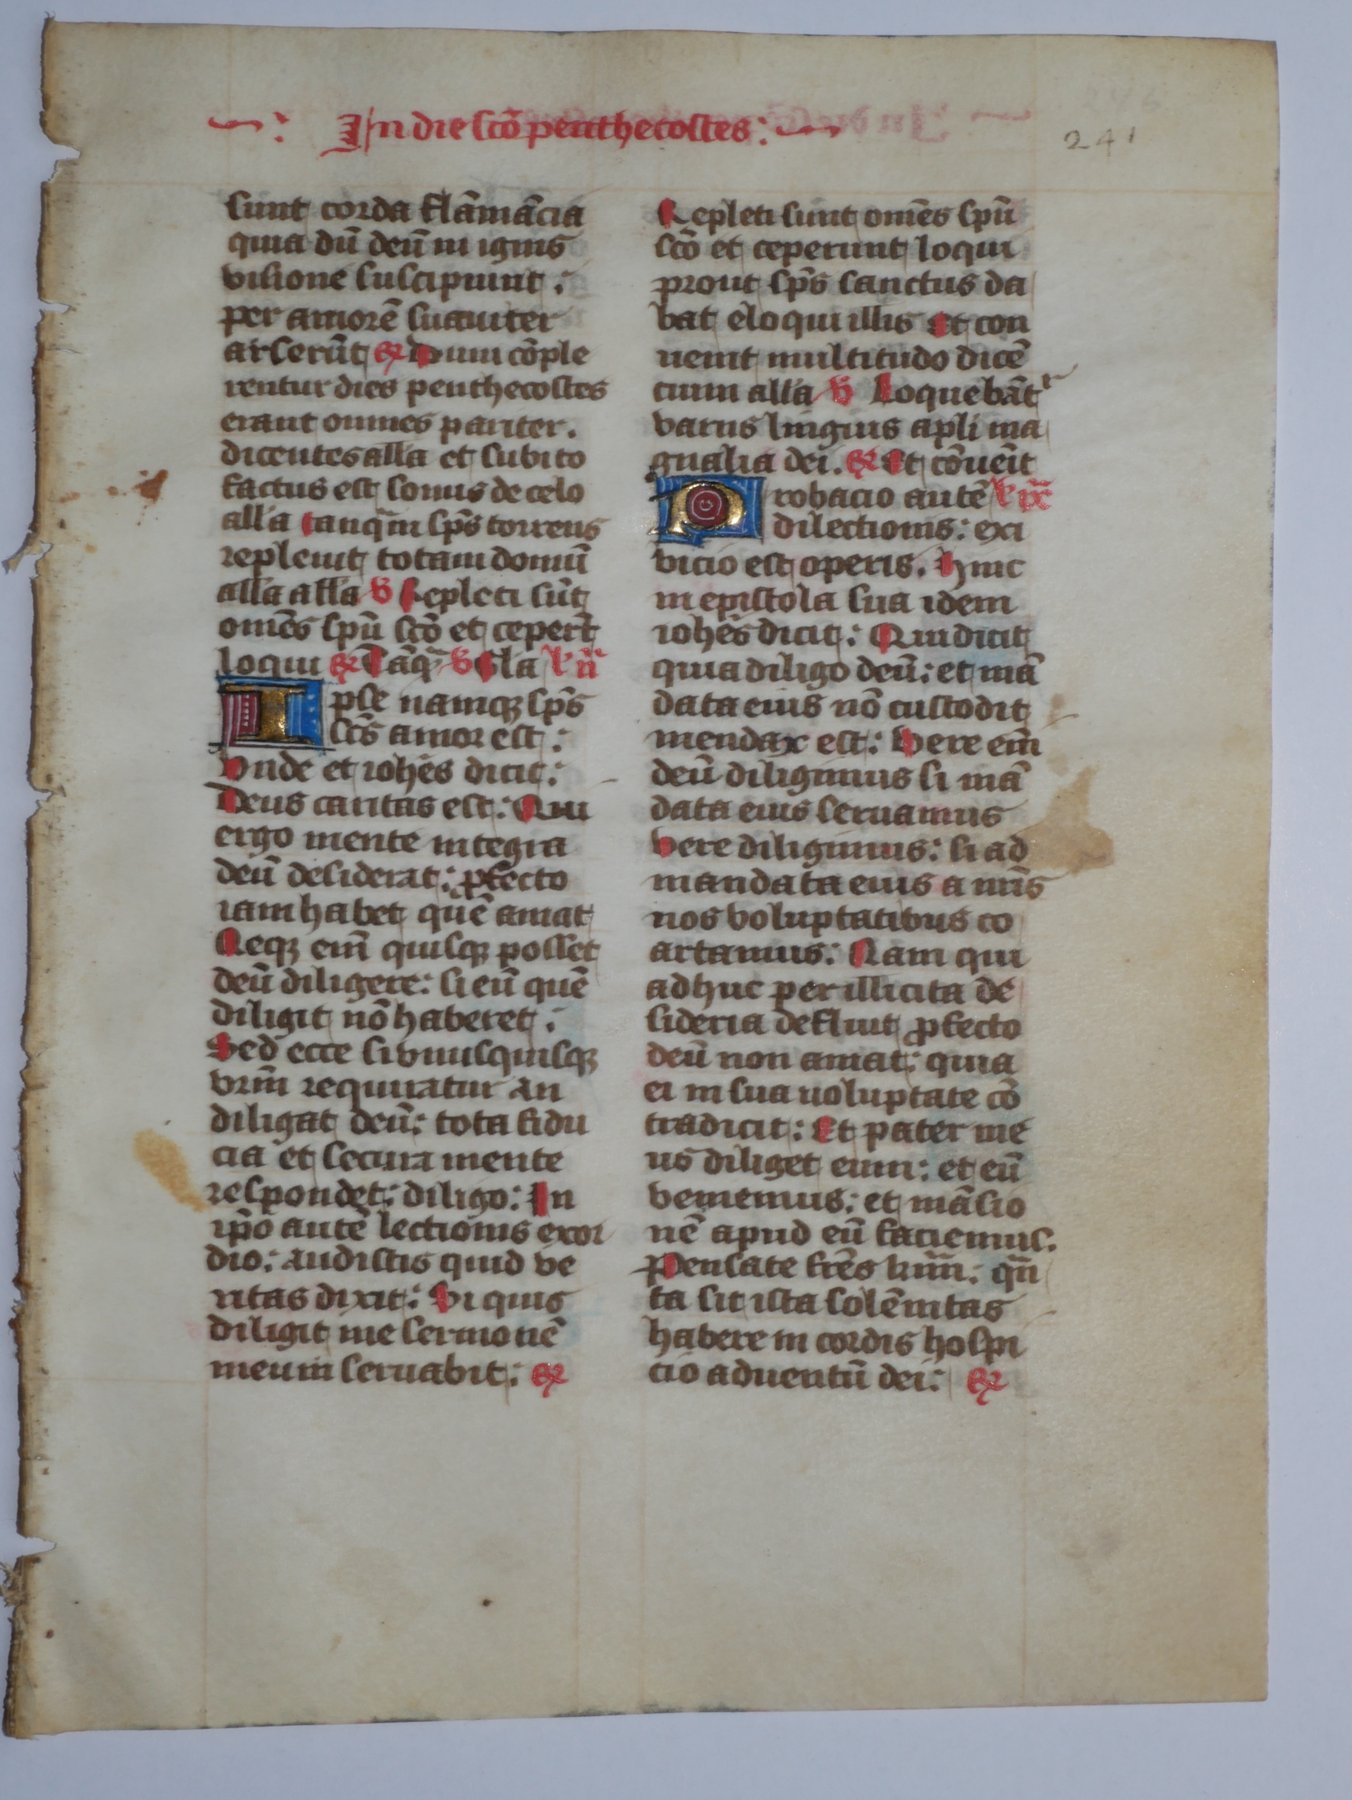 In die scō penthecostes:
241
sunt corda flāmācia
quia dū deū in ignis
visione suscipiunt:
per amorē suauiter
arserūt ꝶ Dum cōple
rentur dies penthecostes
erant omnes pariter.
dicentes all'a et subito
factus est sonus de celo
all'a tanqm̄ sps̄ torrens
repleuit totam domū
all'a all'a ꝟ Repleti sūt
omēs spū scō et ceperūt
loqui ꝶ Tāq̄ ꝟ Gla
Ipse namqꝫ sps̄
scs̄ amor est:
Vnde et iohēs dicit:
Deus caritas est: Qui
ergo mente integra
deū desiderat: ꝓfecto
iam habet quē amat
Neqꝫ em̄ quisqꝫ posset
deū diligere: si eū quē
diligit nō haberet:
Sed ecce si vnusquisqꝫ
vrm̄ requiratur an
diligat deū: tota fidu
cia et secura mente
respondet: diligo: In
ip̄o autē lectionis exor
dio: audistis quid ve
ritas dixit: Si quis
diligit me sermonē
meum seruabit: ꝶ
Repleti sunt omēs spū
scō et ceperunt loqui
prout sps̄ sanctus da
bat eloqui illis Et con
uenit multitudo dicē
cium all'a ꝟ Loquebāt
variis lingius apl'i ma
gnalia dei. ꝶ Et cōuēit
Probacio autē
dilectionis: exi
bicio est operis. Hinc
in epistola sua idem
iohēs dicit: Qui dicit
quia diligo deū: et mā
data eius nō custodit
mendax est: Vere em̄
deū diligimus si mā
data eius seruamus
Vere diligimus: si ad
mandata eius a nr̄is
nos voluptatibus co
artamus: Nam qui
adhuc per illicita de
sideria defluit ꝓfecto
deū non amat: quia
ei in sua uoluptate cō
tradicit: Et pater me
us diliget eum: et eū
veniemus: et māsio
nē apud eū faciemus.
Pensate frēs kmi: qn̄
ta sit ista solēnitas
habere in cordis hospi
cio aduentū dei: ꝶ